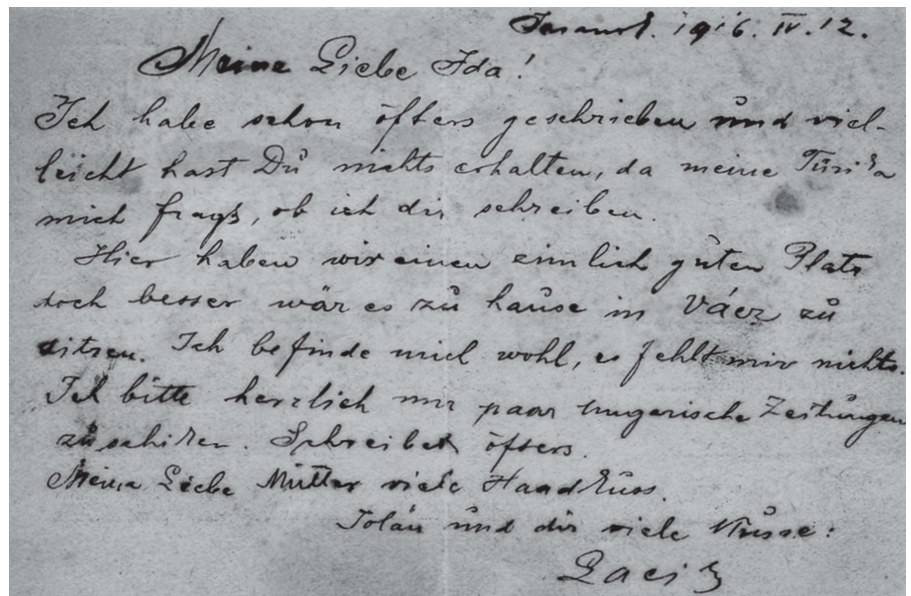 1916. IV. 12.
Meine Liebe Ida!
Ich habe schon öfters geschrieben und viel-
leicht hast Du nichts erhalten, da meine
mich fragt, ob ich dir schreiben.
Hier haben wir einen guten Platz
doch besser wär es zu hause in Vácz zu
sitzen. Ich befinde mich wohl, es fehlt mir nichts.
Ich bitte herzlich mir paar ungarische Zeitungen
zu schiken. Schreibet öfters.
Meina Liebe Mutter viele Handkuss.
Jolán und dir viele Küsse:
Laci